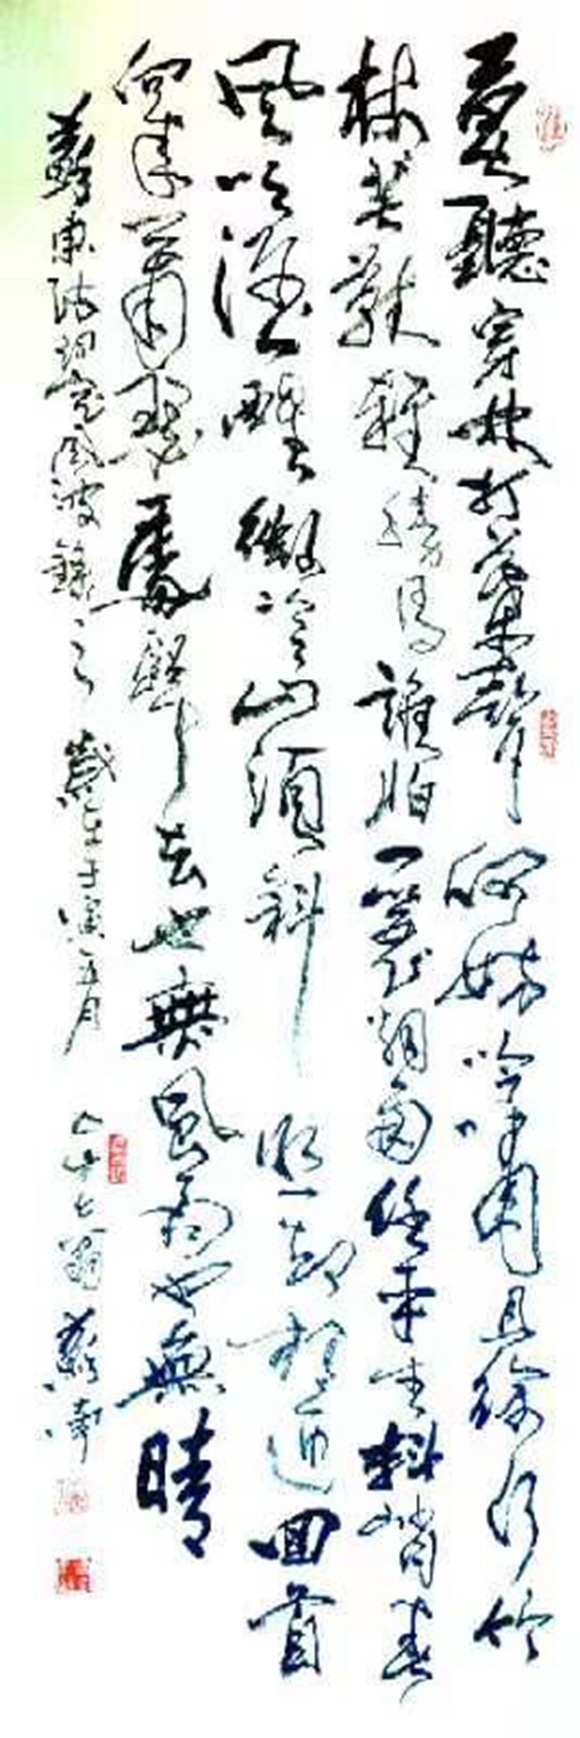 莫聽穿林打葉聲何妨吟嘯且徐行竹
杖芒鞋輕勝馬誰怕一蓑烟雨任平生料峭春
風吹酒醒微冷山頭斜照却相迎回首
向來蕭瑟處歸去也無風雨也無晴
蘇東坡詞定風波錄之歲在壬寅五月八十七翁